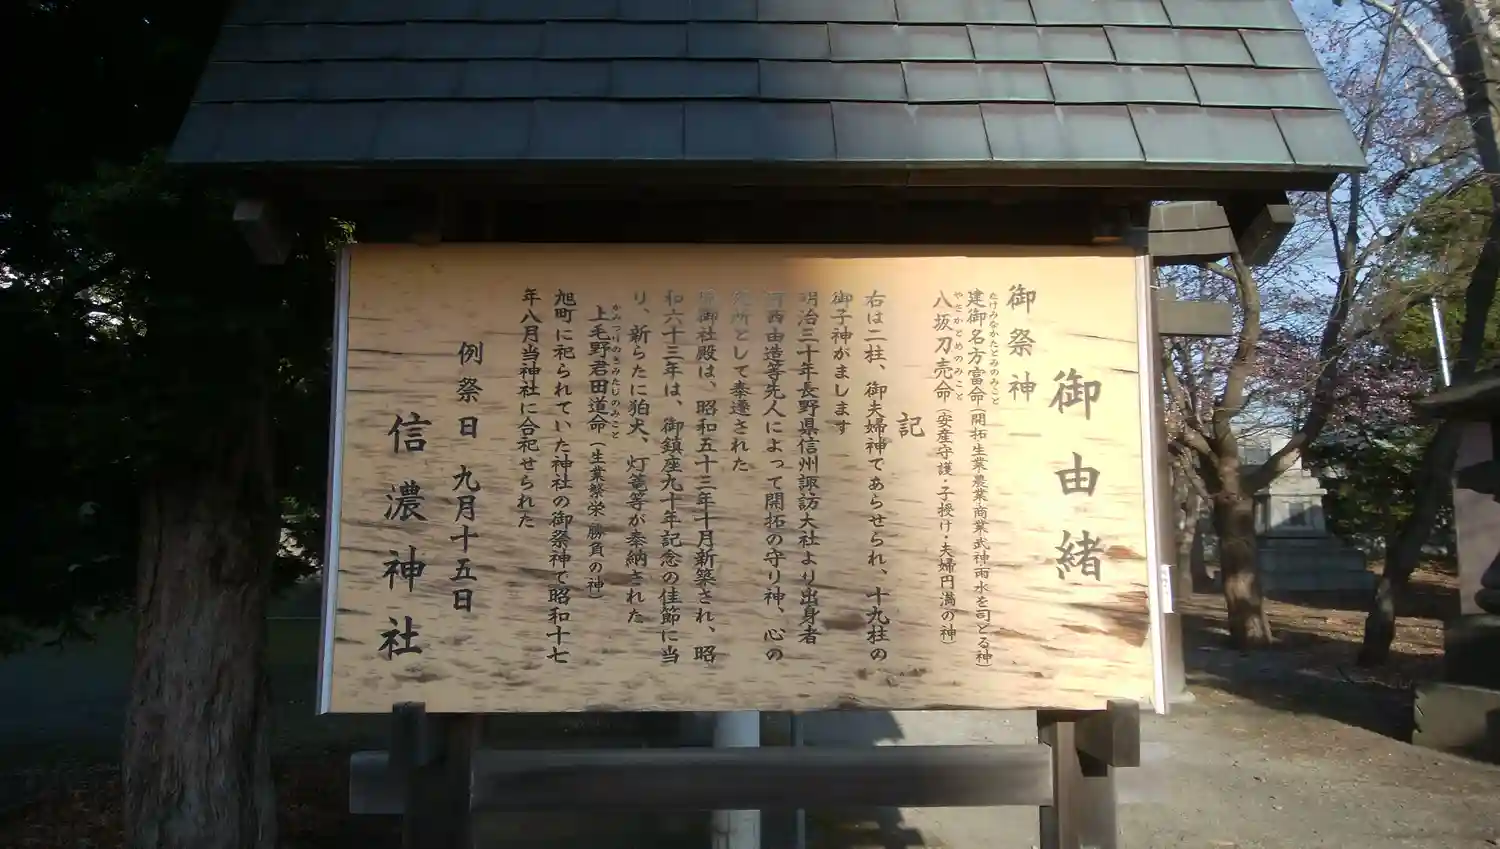 御由緒
御祭神
たけみなかたとみのみこと
建御名方富命(開拓生業農業商業武神雨水を司どる神)
やさかとめのみこと
八坂刀売命(安産守護・子授け・夫婦円満の神)
記
右は二柱、御夫婦神であらせられ、十九柱の
御子神がまします
明治三十年長野県信州諏訪大社より出身者
河西由造等先人によって開拓の守り神、心の
として奉遷された
御社殿は、昭和五十三年十月新築され、昭
和六十三年は、御鎮座九十年記念の佳節に当
り、新らたに狛犬、灯篭等が奉納された
かみつけのきみたじのみこと
上毛野君田道命(生業繁栄 勝負の神)
旭町に祀られていた神社の御祭神で昭和十七
年八月当神社に合祀せられた
例祭日 九月十五日
信濃神社